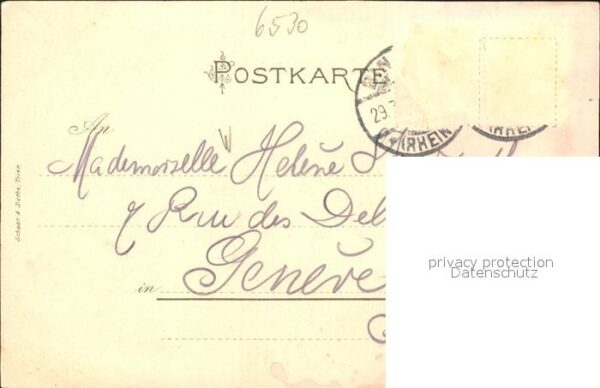 6530
POSTKARTE.
29.
(RHEIN)
(RHEIN)
An
Mademoiselle Helène
7 Rue des Del
in Genève
privacy protection
Datenschutz
Schaar & Dathe, Trier.